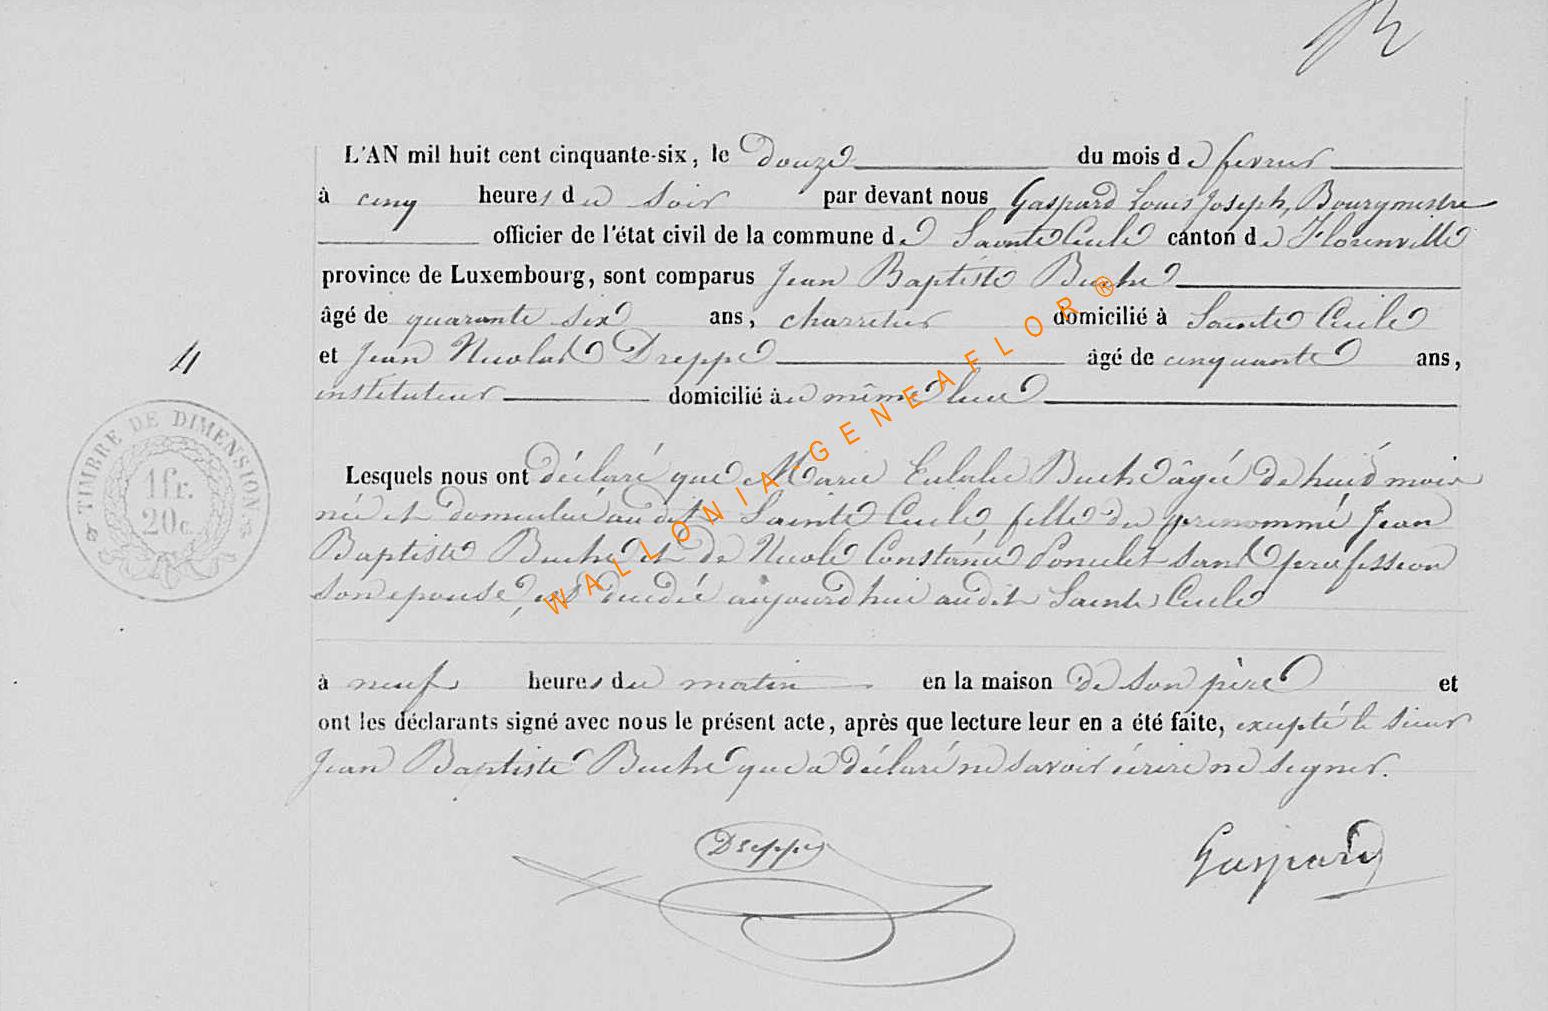 L'AN mil huit cent cinquante-six, le Douze du mois de fevrier
à cinq heures du soir par devant nous Gaspard Louis Joseph, Bourgmestre
officier de l'état civil de la commune de Sainte Cecile canton de Florenville
province de Luxembourg, sont comparus Jean Baptiste Buche
âgé de quarante six ans, charretier domicilié à Sainte Cecile
et Jean Nicolas Dreppe âgé de cinquante ans,
4
instituteur domicilié au même lieu
TIMBRE DE DIMENSION
1fr.
20c.
Lesquels nous ont déclaré que Marie Eulalie Buche âgée de huit mois
née et domiciliée audit Sainte Cecile, fille du prénommé Jean
Baptiste Buche et de Nicole Constance Poncelet sans profession
son epouse, est décédée aujourd'hui audit Sainte Cecile
à neuf heures du matin en la maison de son père et
ont les déclarants signé avec nous le présent acte, après que lecture leur en a été faite, excepté le sieur
Jean Baptiste Buche qui a déclaré ne savoir écrire ne signer.
Dreppe
Gaspard
WALLONIA-GENEAFLOR®